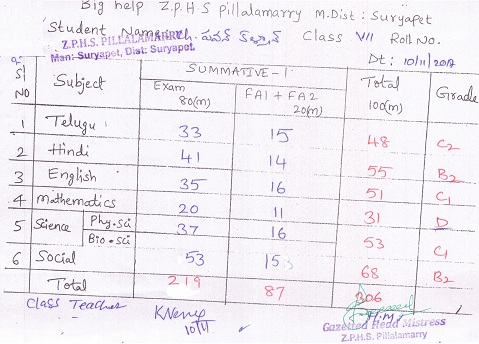 Big help Z.P.H.S Pillalamarry M.Dist: Suryapet
Student Name: Ch. పవన్ కళ్యాణ్ Class VII Roll No.
Z.P.H.S. PILLALAMARRY
Man: Suryapet, Dist: Suryapet.
Dt: 10/11/2017
Sl NO Subject SUMMATIVE-1 Total 100(m) Grade
Exam 80(m) FA1 + FA2 20(m)
1 Telugu 33 15 48 C2
2 Hindi 41 14 55 B2
3 English 35 16 51 C1
4 mathematics 20 11 31 D
5 Science Phy.sci Bio.sci 37 16 53 C1
6 Social 53 15 68 B2
Total 219 87 306
Class Teacher 10/11
H.M
Gazetted Head Mistress
Z.P.H.S. Pillalamarry